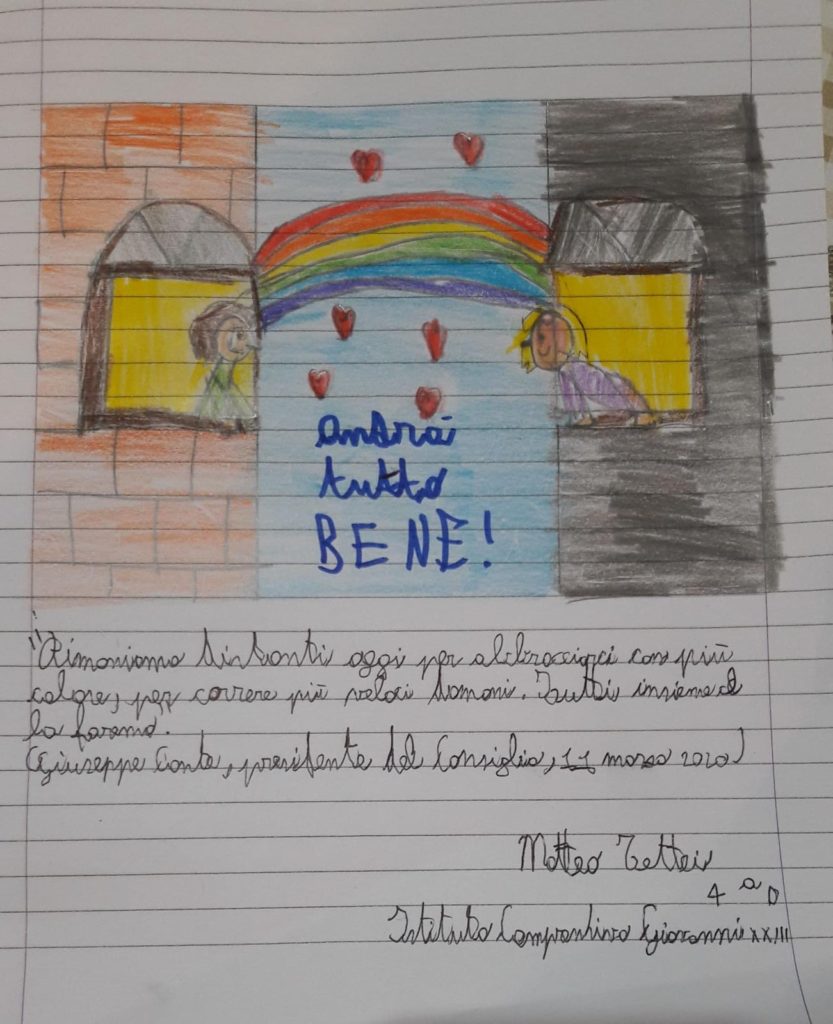 andrà
tutto
BENE!
"Rimaniamo distanti oggi per abbracciarci con più
calore, per correre più veloci domani. Tutti insieme ce
la faremo.
(Giuseppe Conte, presidente del Consiglio, 11 marzo 2020)
Matteo
4ª D
Istituto Comprensivo Giovanni XXIII